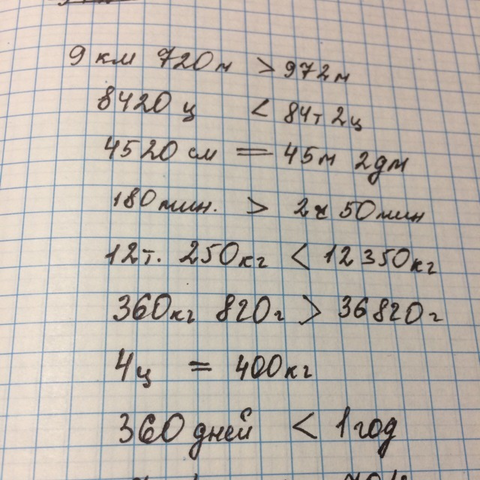 9 км 720 м > 972 м
8420 ц < 84т 2ц
4520 см = 45м 2дм
180 мин. > 2ч 50 мин
12т. 250кг < 12350кг
360кг 820г > 36820г
4ц = 400кг
360 дней < 1 год